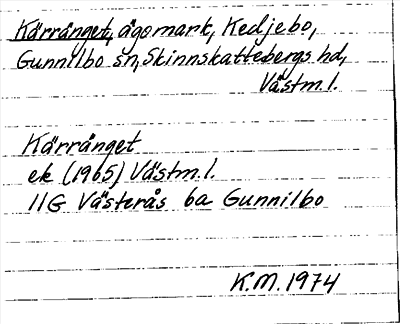 Kärrånget, ägomark, Kedjebo,
Gunnilbo sn, Skinnskattebergs hd,
Västm.l.
Kärrånget
ek (1965) Västm.l.
11G Västerås 6a Gunnilbo
K.M. 1974